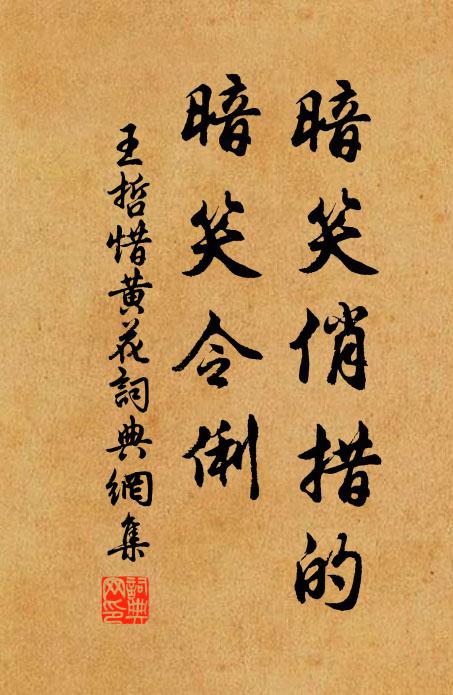 暗笑俏措的
暗笑令俐
王哲惜黄花詞典網集
詞典
网印